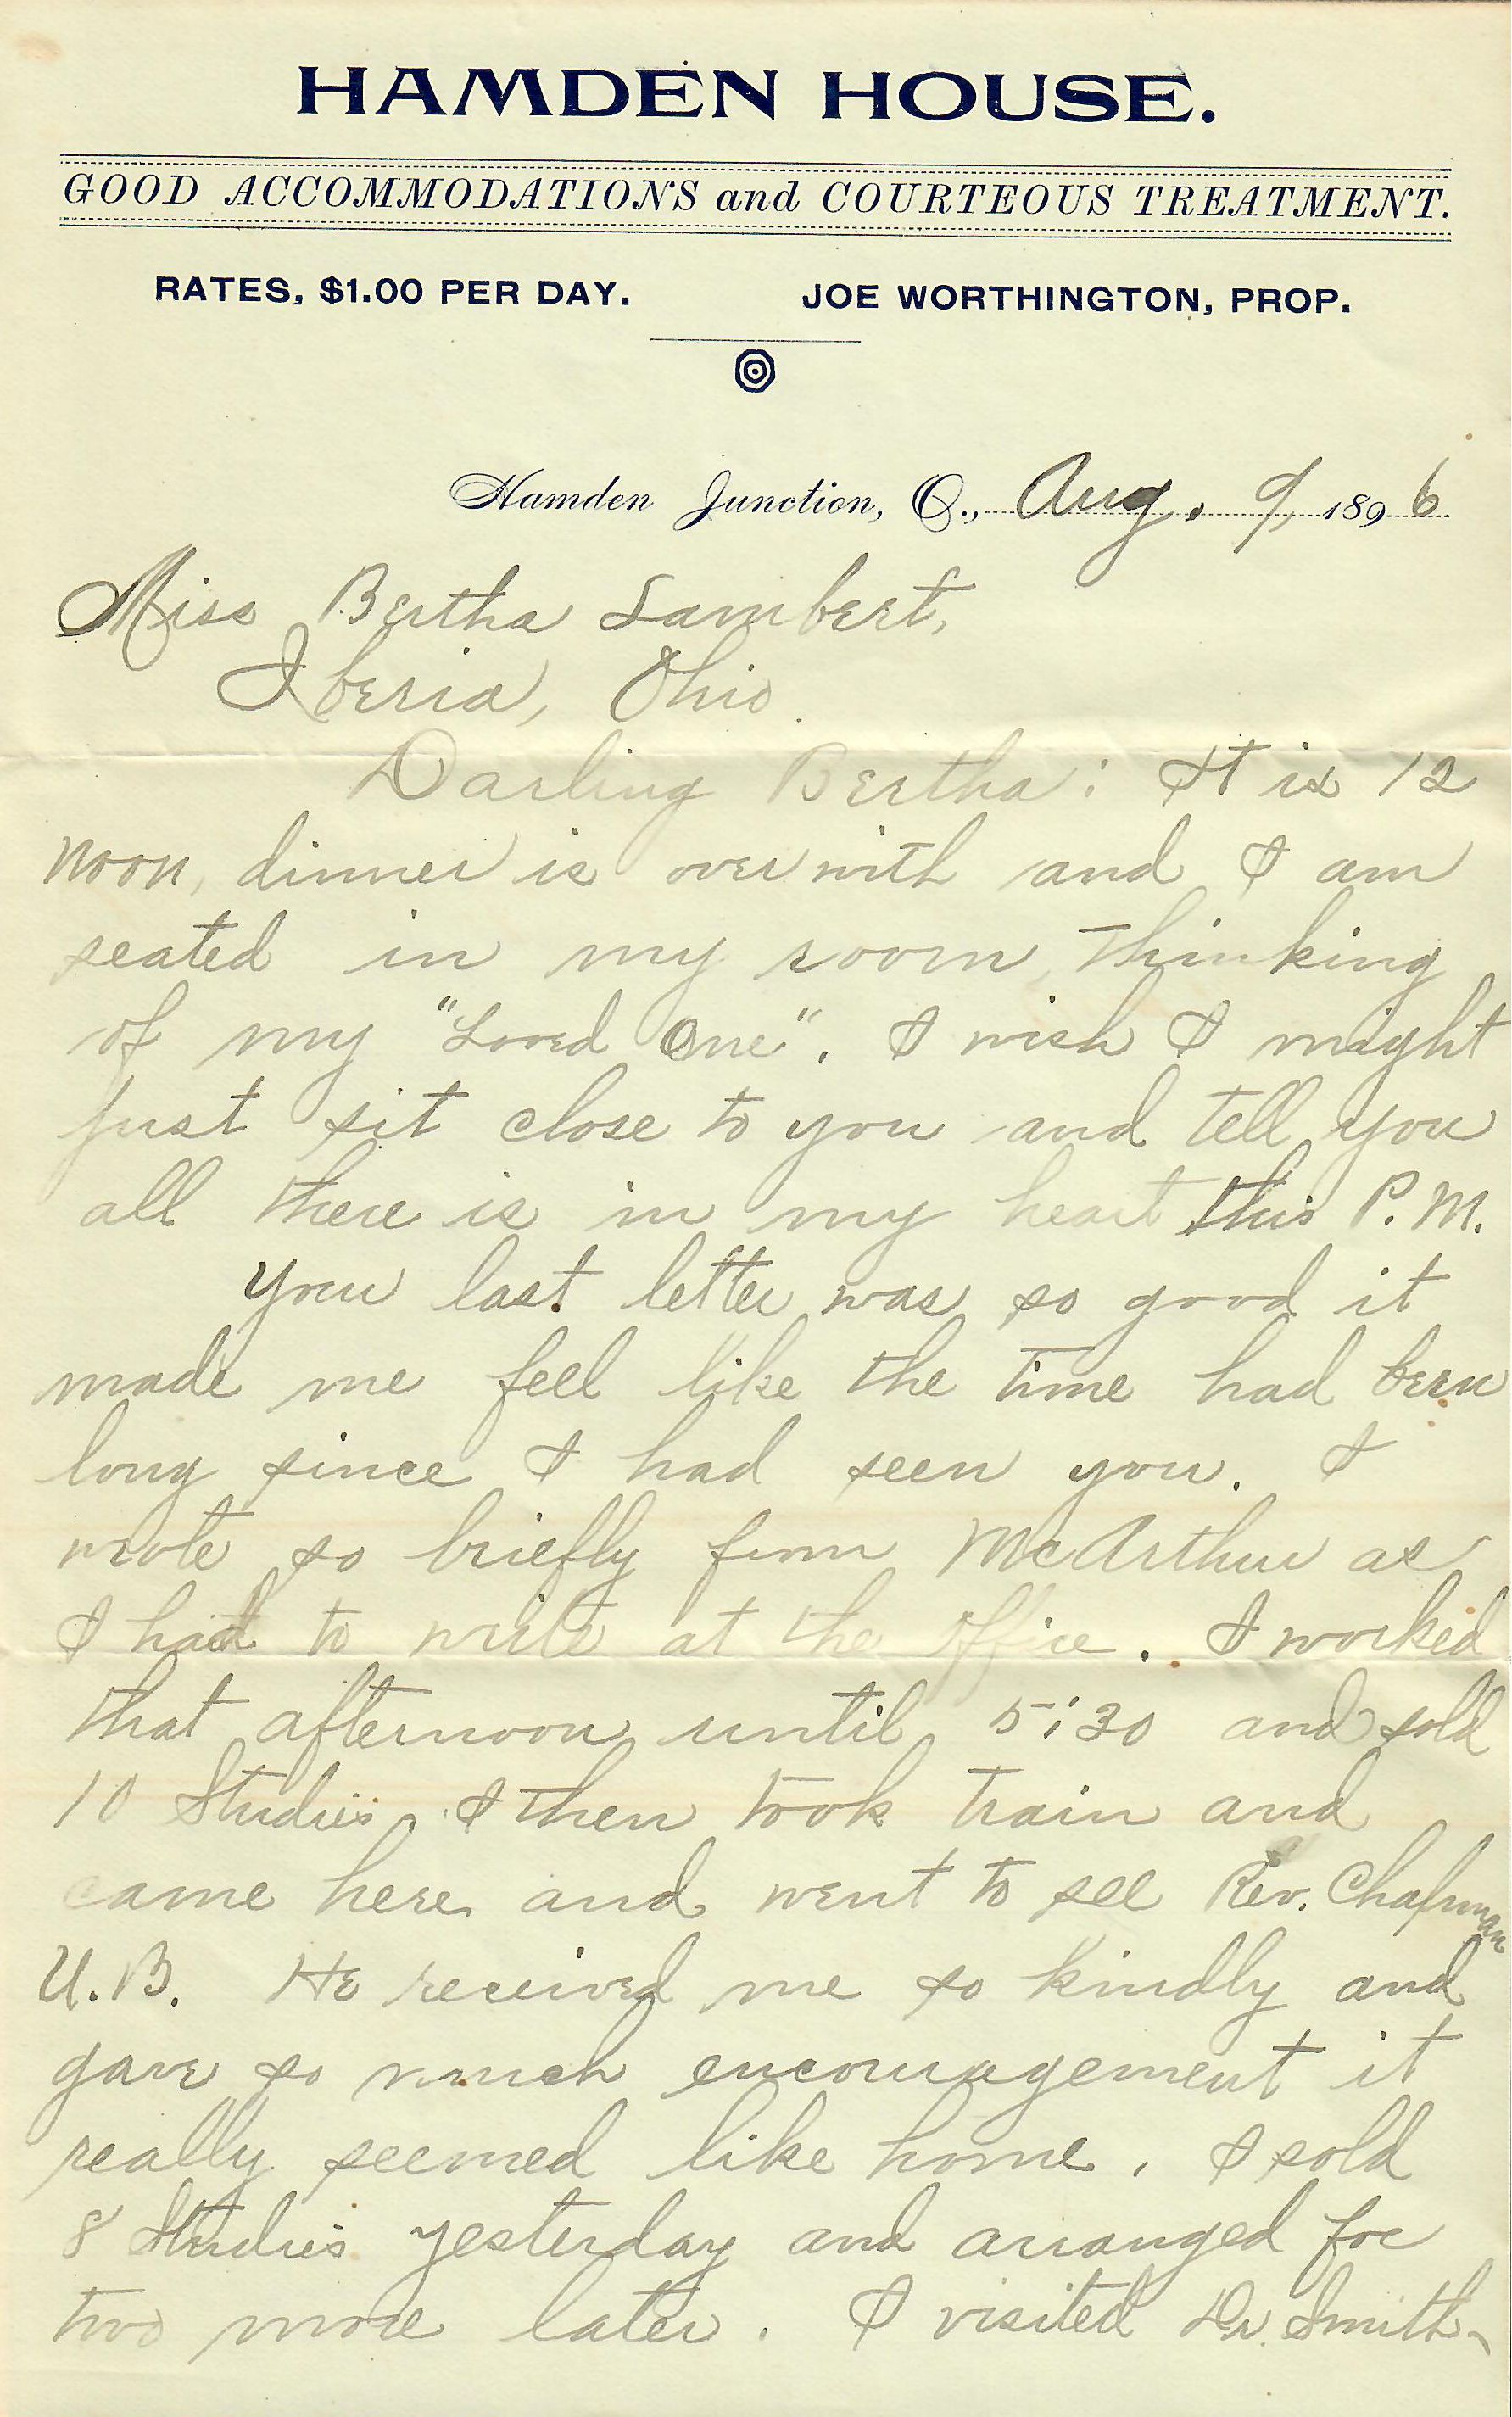 HAMDEN HOUSE.
GOOD ACCOMMODATIONS and COURTEOUS TREATMENT.
RATES, $1.00 PER DAY. JOE WORTHINGTON, PROP.
Hamden Junction, O., Aug. 9, 1896
Miss Bertha Lambert,
Iberia, Ohio.
Darling Bertha: It is 12
noon, dinner is over with and I am
seated in my room thinking
of my "Loved One". I wish I might
just sit close to you and tell you
all there is in my heart this P.M.
Your last letter was so good it
made me feel like the time had been
long since I had seen you. I
wrote so briefly from McArthur as
I had to write at the office. I worked
that afternoon until 5:30 and sold
10 Studies. I then took train and
came here and went to see Rev. Chapman
U.B. He received me so kindly and
gave so much encouragement it
really seemed like home. I sold
8 Studies yesterday and arranged for
two more later. I visited Dr. Smith